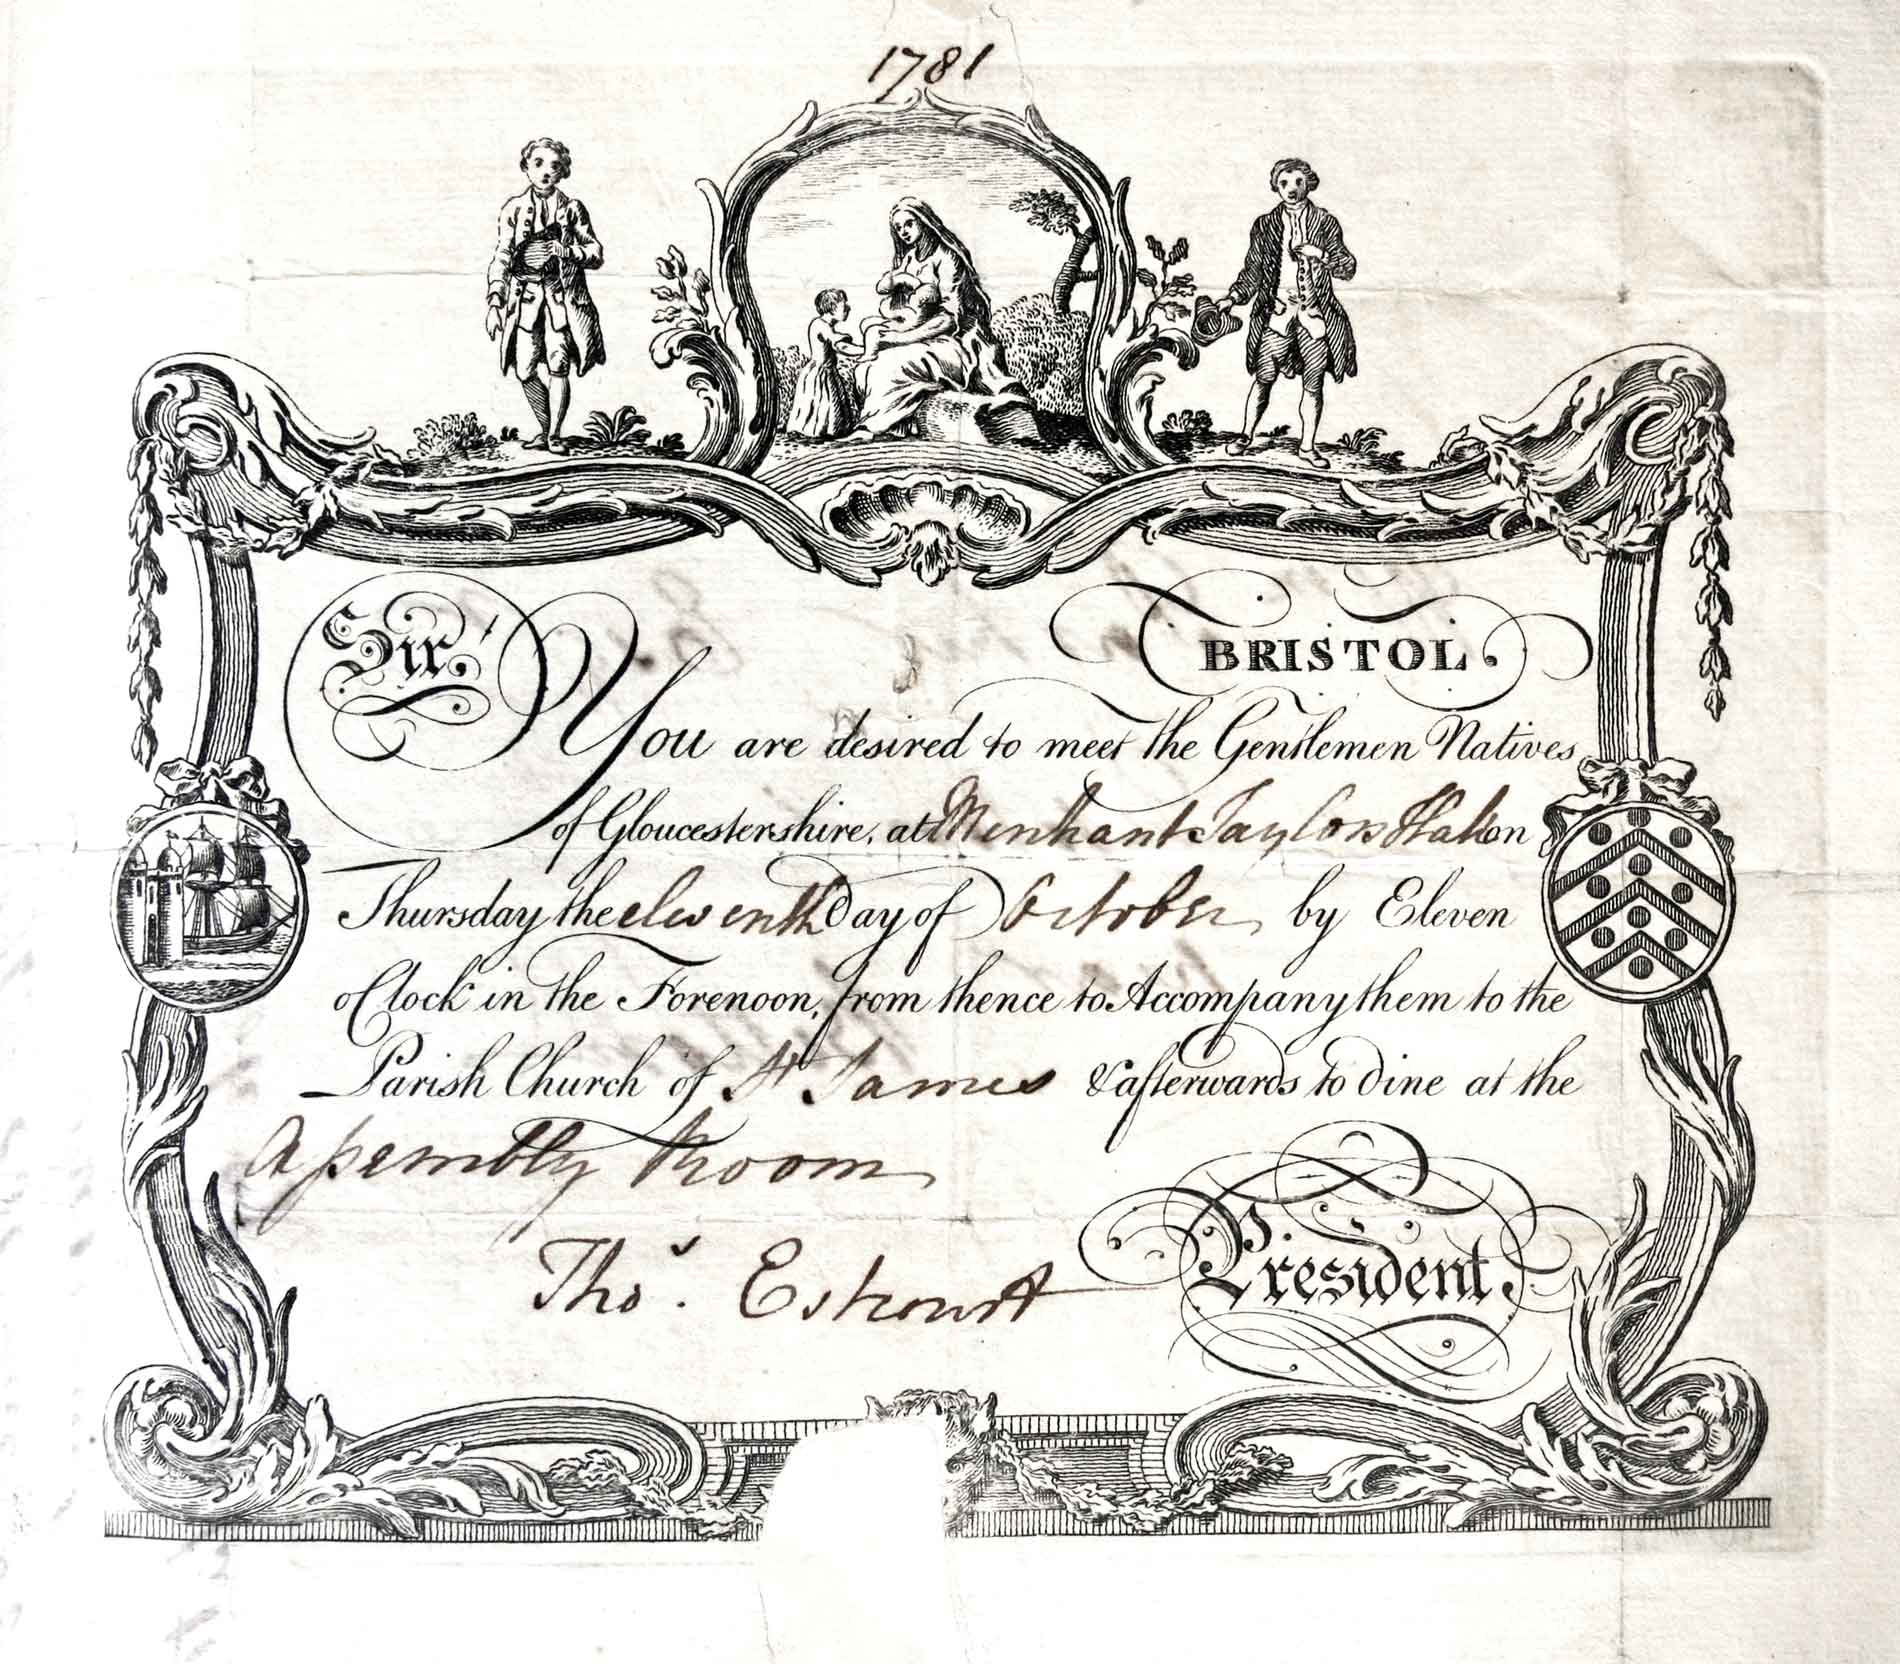 1781
Sir,
BRISTOL.
You are desired to meet the Gentlemen Natives
of Gloucestershire, at Merchant Taylors Hall on
Thursday the eleventh Day of October by Eleven
o'Clock in the Forenoon, from thence to Accompany them to the
Parish Church of St James & afterwards to Dine at the
Assembly Room
Thos. Estcourt President.